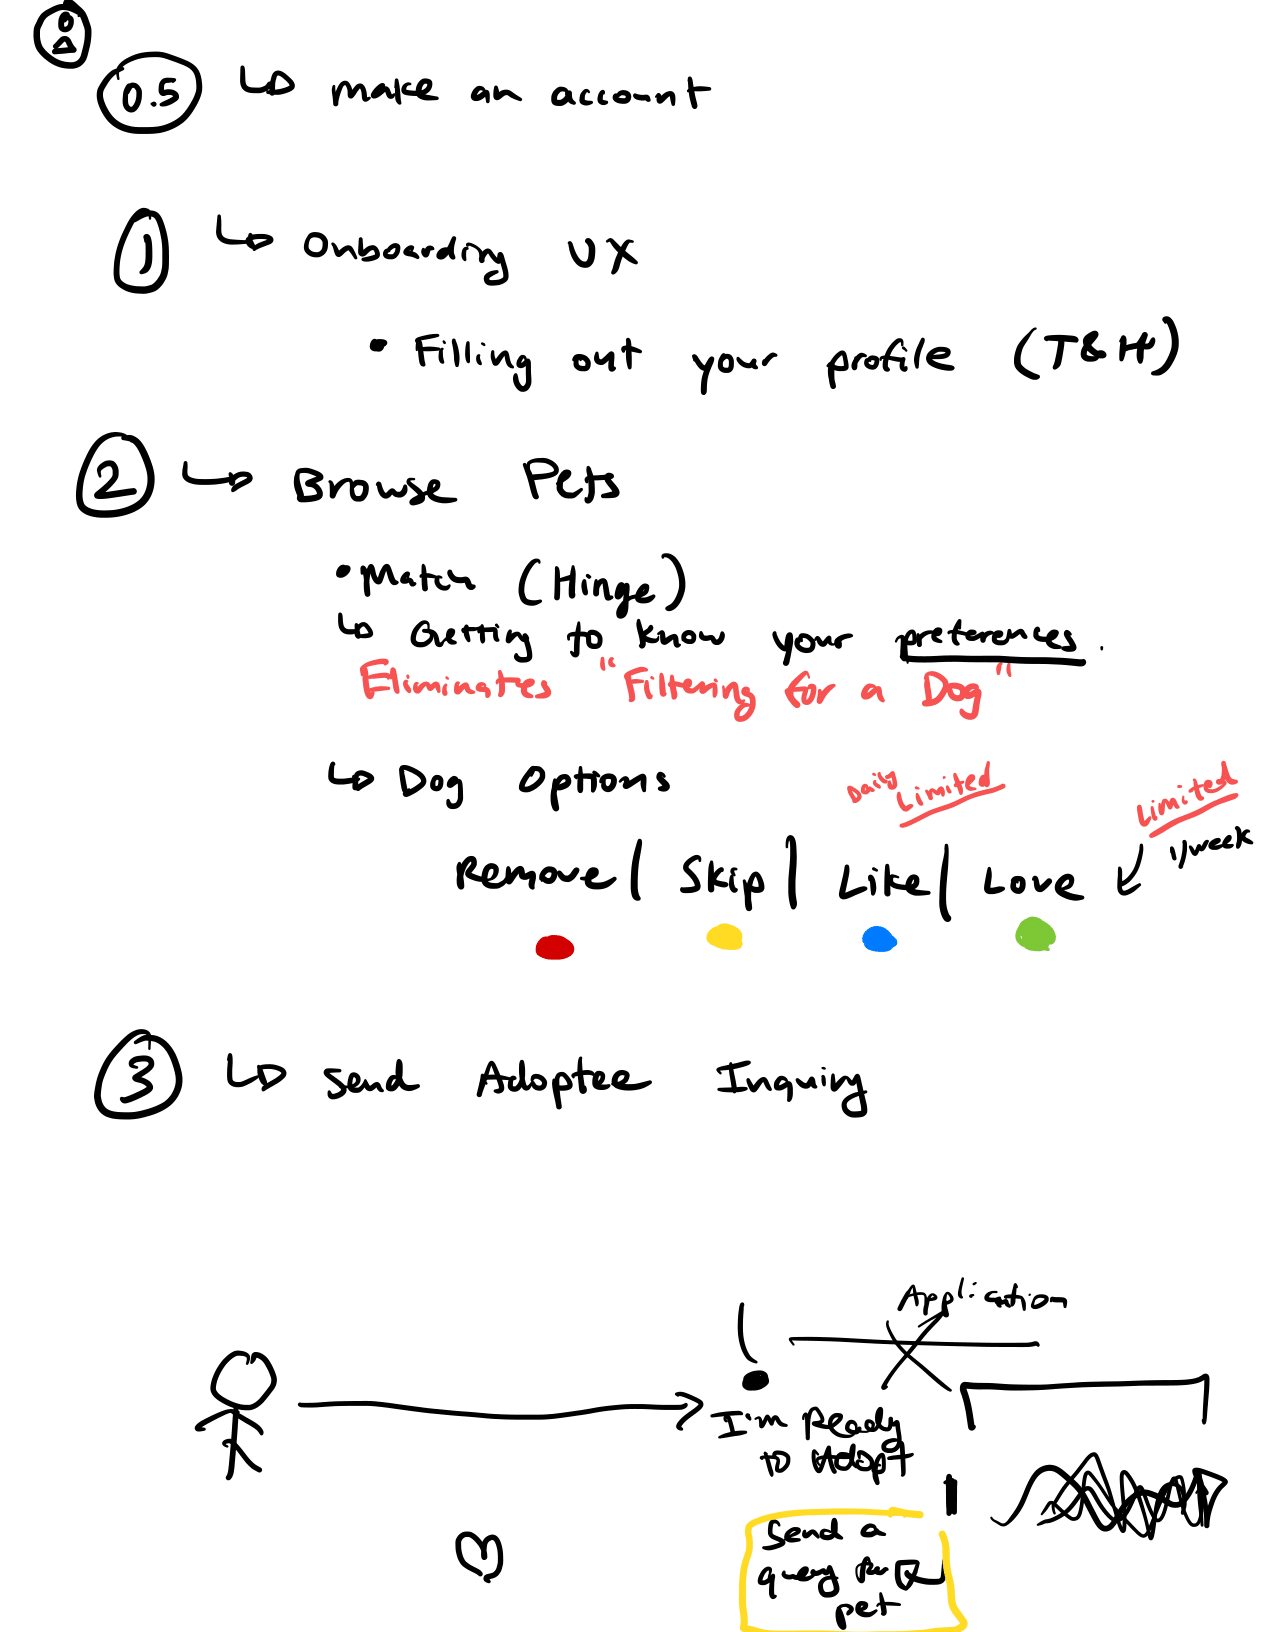 0.5 make an account
1 Onboarding UX
• Filling out your profile (T&H)
2 Browse Pets
• Match (Hinge)
Getting to know your preferences.
Eliminates "Filtering for a Dog"
Dog Options
Daily Limited
Limited
1/week
Remove | Skip | Like | Love
3 Send Adoptee Inquiry
Application
I'm Ready
to Adopt
Send a
query for
pet